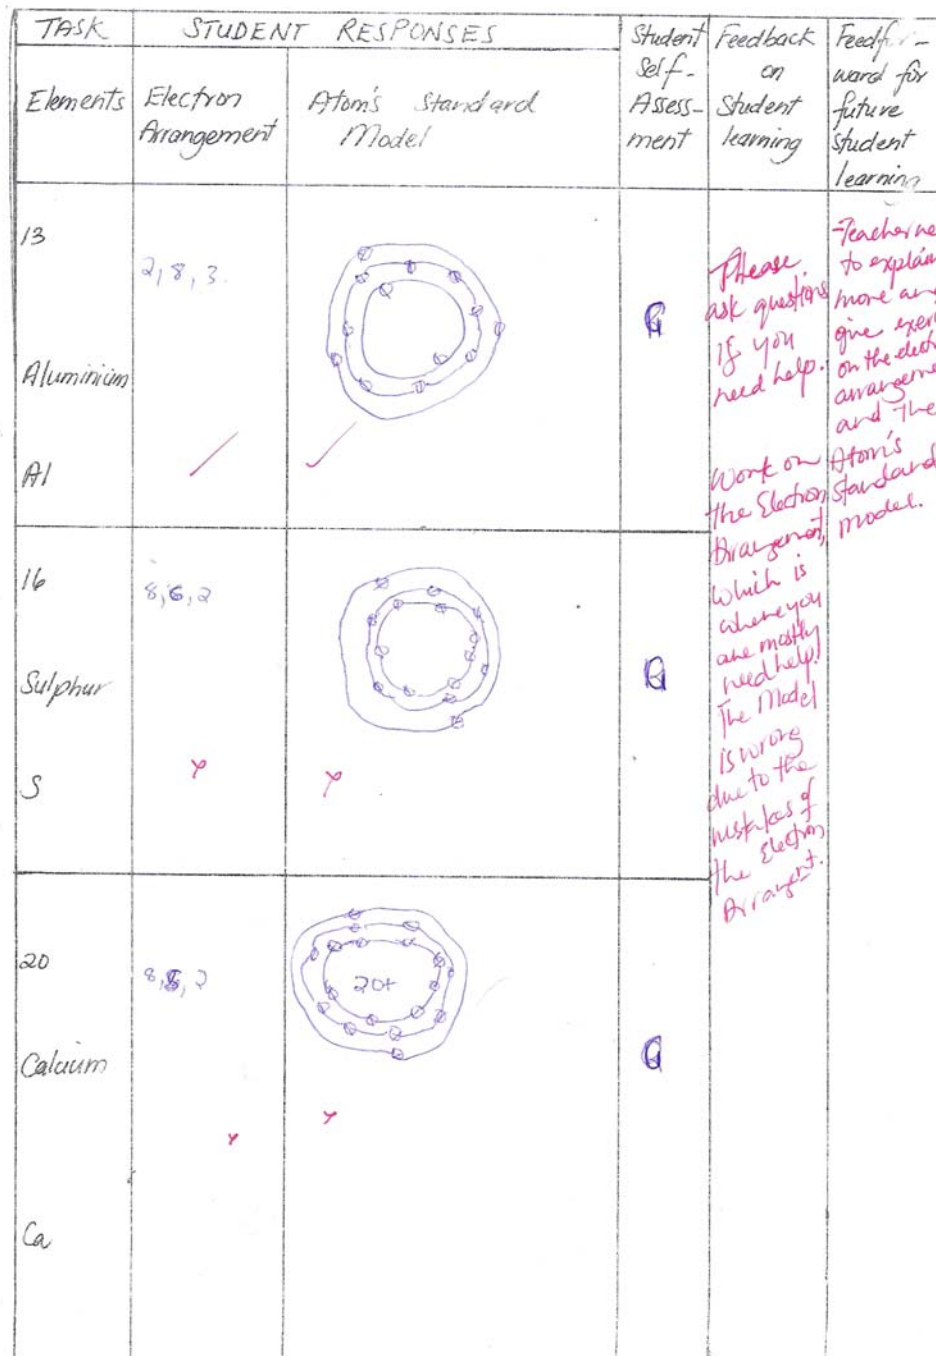 TASK
STUDENT RESPONSES
Student
Self-
Assess-
ment
Feedback
on
Student
learning
Feedfor-
ward for
future
student
learning
Elements
Electron
Arrangement
Atom's Standard
Model
13
Aluminium
Al
2,8,3.
G
Please
ask questions
if you
need help.
Work on
the Electron
Arrangement,
which is
where you
are mostly
need help!
The Model
is wrong
due to the
mistakes of
the Electron
Arrangent.
-Teacher ne
to explain
more an
give exer
on the elect
arrangeme
and the
Atom's
Standard
model.
16
Sulphur
S
8,6,2
G
20
Calcium
Ca
8,8,2
20+
G